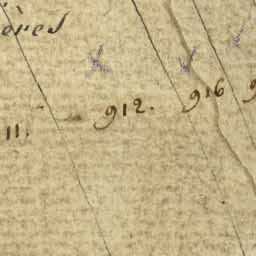 ères
11.
912.
916
9